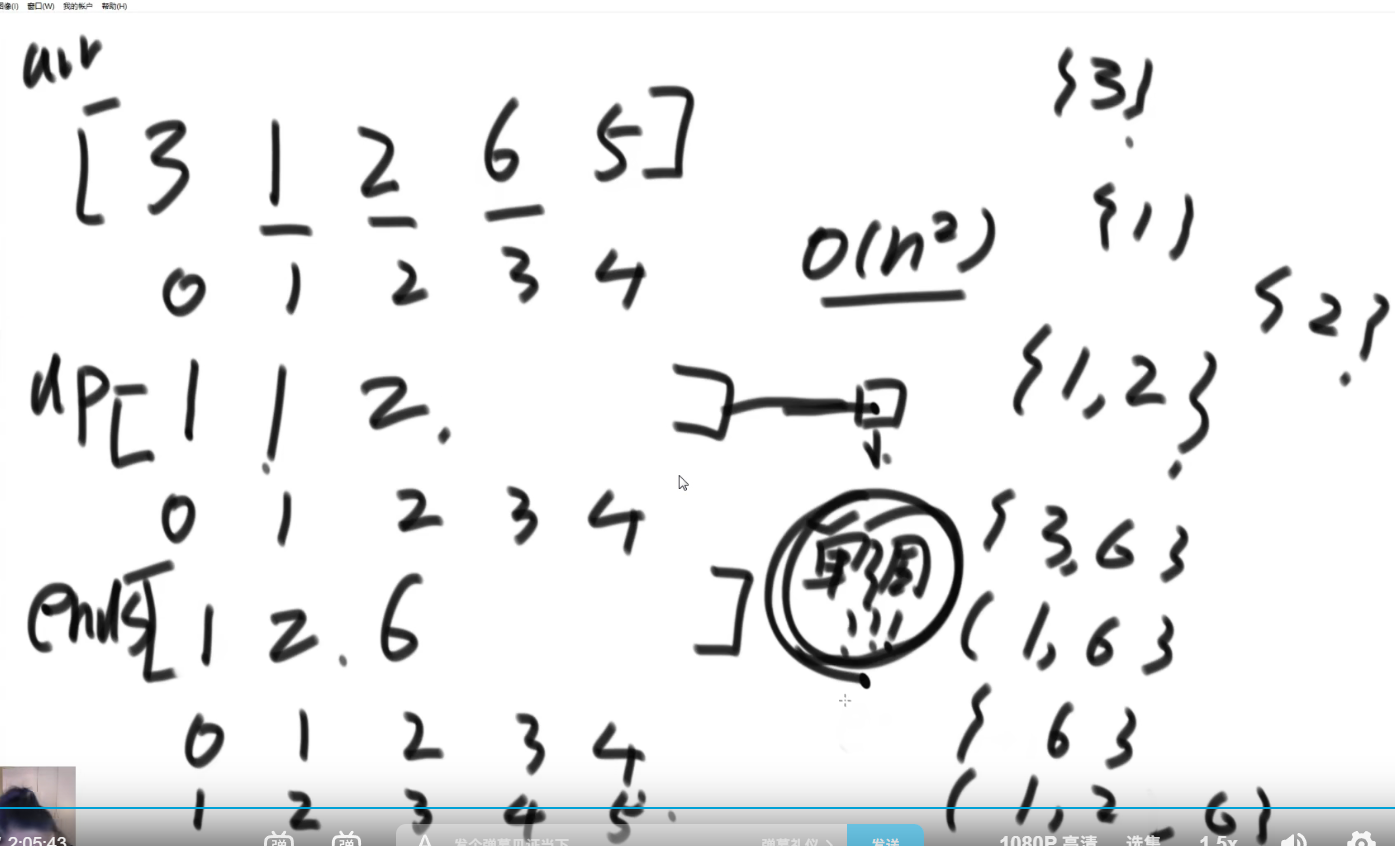 图像(I) 窗口(W) 我的帐户 帮助(H)
arr
[ 3 1 2 6 5 ]
0 1 2 3 4
O(n²)
dp [ 1 1 2 . ]
0 1 2 3 4
ends [ 1 2 . 6 ]
0 1 2 3 4
1 2 3 4 5
单调
!!!
{ 3 }
{ 1 }
{ 2 }
{ 1, 2 }
{ 3, 6 }
{ 1, 6 }
{ 6 }
{ 1, 2, 6 }
2:05:43 弹 弹 A 发个弹幕见证当下 弹幕礼仪 > 发送 1080P 高清 选集 1.5x